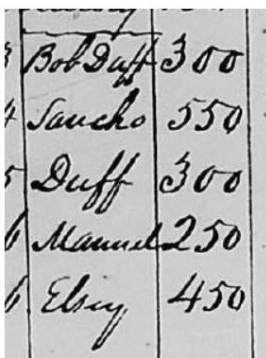 3 Bob Duff 300
4 Sancho 550
5 Duff 300
6 Manuel 250
6 Elsey 450